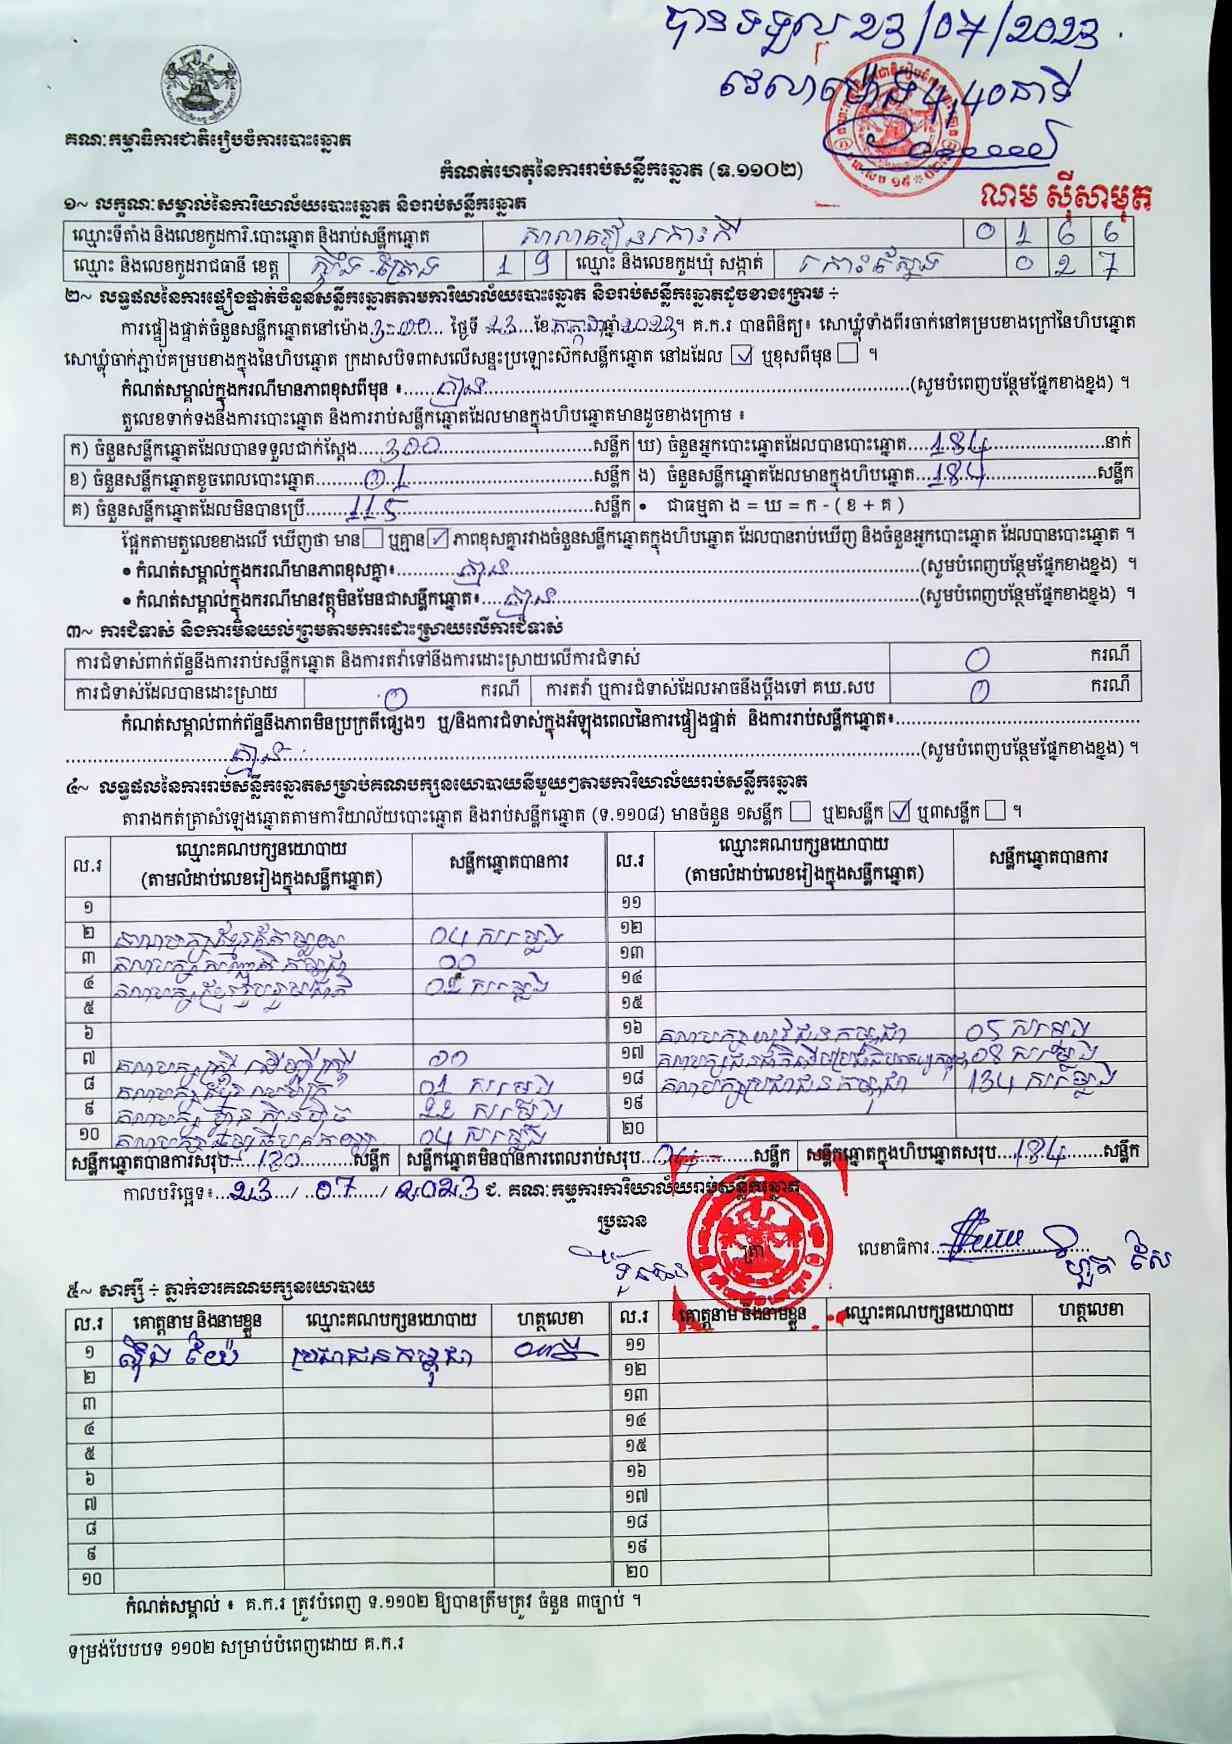 បានទទួល 23/07/2023
វេលាម៉ោង 4,40នាទី
គណៈកម្មាធិការជាតិរៀបចំការបោះឆ្នោត
កំណត់ហេតុនៃការរាប់សន្លឹកឆ្នោត (ទ.១១០២)
ណម ស៊ីសាមុត
១~ លក្ខណៈសម្គាល់នៃការិយាល័យបោះឆ្នោត និងរាប់សន្លឹកឆ្នោត
ឈ្មោះទីតាំង និងលេខកូដការិ.បោះឆ្នោត និងរាប់សន្លឹកឆ្នោត សាលារៀន 0 1 6 6
ឈ្មោះ និងលេខកូដរាជធានី ខេត្ត ស្ទឹង-ត្រែង 1 9 ឈ្មោះ និងលេខកូដឃុំ សង្កាត់ 0 2 7
២~ លទ្ធផលនៃការផ្ទៀងផ្ទាត់ចំនួនសន្លឹកឆ្នោតតាមការិយាល័យបោះឆ្នោត និងរាប់សន្លឹកឆ្នោតដូចខាងក្រោម ÷
ការផ្ទៀងផ្ទាត់ចំនួនសន្លឹកឆ្នោតនៅម៉ោង 3:00 ថ្ងៃទី 23 ខែ កក្កដា ឆ្នាំ 2023។ គ.ក.រ បានពិនិត្យ៖ សោឃ្លុំទាំងពីរចាក់នៅគម្របខាងក្រៅនៃហិបឆ្នោត
សោឃ្លុំចាក់ភ្ជាប់គម្របខាងក្នុងនៃហិបឆ្នោត ក្រដាសបិទពាសលើសន្ទះប្រឡោះស៊កសន្លឹកឆ្នោត នៅដដែល ☑ ឬខុសពីមុន ☐ ។
កំណត់សម្គាល់ក្នុងករណីមានភាពខុសពីមុន ៖ គ្មាន (សូមបំពេញបន្ថែមផ្នែកខាងខ្នង) ។
តួលេខទាក់ទងនឹងការបោះឆ្នោត និងការរាប់សន្លឹកឆ្នោតដែលមានក្នុងហិបឆ្នោតមានដូចខាងក្រោម ៖
ក) ចំនួនសន្លឹកឆ្នោតដែលបានទទួលជាក់ស្តែង 300 សន្លឹក ឃ) ចំនួនអ្នកបោះឆ្នោតដែលបានបោះឆ្នោត 184 នាក់
ខ) ចំនួនសន្លឹកឆ្នោតខូចពេលបោះឆ្នោត 01 សន្លឹក ង) ចំនួនសន្លឹកឆ្នោតដែលមានក្នុងហិបឆ្នោត 184 សន្លឹក
គ) ចំនួនសន្លឹកឆ្នោតដែលមិនបានប្រើ 115 សន្លឹក • ជាធម្មតា ង = ឃ = ក - ( ខ + គ )
ផ្អែកតាមតួលេខខាងលើ ឃើញថា មាន ☐ ឬគ្មាន ☑ ភាពខុសគ្នារវាងចំនួនសន្លឹកឆ្នោតក្នុងហិបឆ្នោត ដែលបានរាប់ឃើញ និងចំនួនអ្នកបោះឆ្នោត ដែលបានបោះឆ្នោត ។
• កំណត់សម្គាល់ក្នុងករណីមានភាពខុសគ្នា៖ គ្មាន (សូមបំពេញបន្ថែមផ្នែកខាងខ្នង) ។
• កំណត់សម្គាល់ក្នុងករណីមានវត្ថុមិនមែនជាសន្លឹកឆ្នោត៖ គ្មាន (សូមបំពេញបន្ថែមផ្នែកខាងខ្នង) ។
៣~ ការជំទាស់ និងការមិនយល់ព្រមតាមការដោះស្រាយលើការជំទាស់
ការជំទាស់ពាក់ព័ន្ធនឹងការរាប់សន្លឹកឆ្នោត និងការតវ៉ាទៅនឹងការដោះស្រាយលើការជំទាស់ 0 ករណី
ការជំទាស់ដែលបានដោះស្រាយ 0 ករណី ការតវ៉ា ឬការជំទាស់ដែលអាចនឹងប្តឹងទៅ គឃ.សប 0 ករណី
កំណត់សម្គាល់ពាក់ព័ន្ធនឹងភាពមិនប្រក្រតីផ្សេងៗ ឬ/និងការជំទាស់ក្នុងអំឡុងពេលនៃការផ្ទៀងផ្ទាត់ និងការរាប់សន្លឹកឆ្នោត៖
គ្មាន (សូមបំពេញបន្ថែមផ្នែកខាងខ្នង) ។
៤~ លទ្ធផលនៃការរាប់សន្លឹកឆ្នោតសម្រាប់គណបក្សនយោបាយនីមួយៗតាមការិយាល័យរាប់សន្លឹកឆ្នោត
តារាងកត់ត្រាសំឡេងឆ្នោតតាមការិយាល័យបោះឆ្នោត និងរាប់សន្លឹកឆ្នោត (ទ.១១០៨) មានចំនួន ១សន្លឹក ☐ ឬ២សន្លឹក ☑ ឬ៣សន្លឹក ☐ ។
ល.រ ឈ្មោះគណបក្សនយោបាយ (តាមលំដាប់លេខរៀងក្នុងសន្លឹកឆ្នោត) សន្លឹកឆ្នោតបានការ ល.រ ឈ្មោះគណបក្សនយោបាយ (តាមលំដាប់លេខរៀងក្នុងសន្លឹកឆ្នោត) សន្លឹកឆ្នោតបានការ
១ ១១
២ 04 សម្លេង ១២
៣ 00 ១៣
៤ គណបក្សខ្មែររួបរួមជាតិ សម្លេង ១៤
៥ ១៥
៦ ១៦ គណបក្សយុវជនកម្ពុជា 05 សម្លេង
៧ គណបក្សស្ត្រីដើម្បីស្ត្រី 00 ១៧ 08 សម្លេង
៨ 01 សម្លេង ១៨ គណបក្សប្រជាជនកម្ពុជា 134 សម្លេង
៩ គណបក្សហ្វ៊ុនស៊ិនប៉ិច 22 សម្លេង ១៩
១០ 04 សម្លេង ២០
សន្លឹកឆ្នោតបានការសរុប 180 សន្លឹក សន្លឹកឆ្នោតមិនបានការពេលរាប់សរុប 04 សន្លឹក សន្លឹកឆ្នោតក្នុងហិបឆ្នោតសរុប 184 សន្លឹក
កាលបរិច្ឆេទ៖ 23 / 07 / 2023 ជ. គណៈកម្មការការិយាល័យរាប់សន្លឹកឆ្នោត
ប្រធាន
ត្រា
លេខាធិការ
៥~ សាក្សី ÷ ភ្នាក់ងារគណបក្សនយោបាយ
ល.រ គោត្តនាម និងនាមខ្លួន ឈ្មោះគណបក្សនយោបាយ ហត្ថលេខា ល.រ គោត្តនាម និងនាមខ្លួន ឈ្មោះគណបក្សនយោបាយ ហត្ថលេខា
១ ប្រជាជនកម្ពុជា ១១
២ ១២
៣ ១៣
៤ ១៤
៥ ១៥
៦ ១៦
៧ ១៧
៨ ១៨
៩ ១៩
១០ ២០
កំណត់សម្គាល់ ៖ គ.ក.រ ត្រូវបំពេញ ទ.១១០២ ឱ្យបានត្រឹមត្រូវ ចំនួន ៣ច្បាប់ ។
ទម្រង់បែបបទ ១១០២ សម្រាប់បំពេញដោយ គ.ក.រ